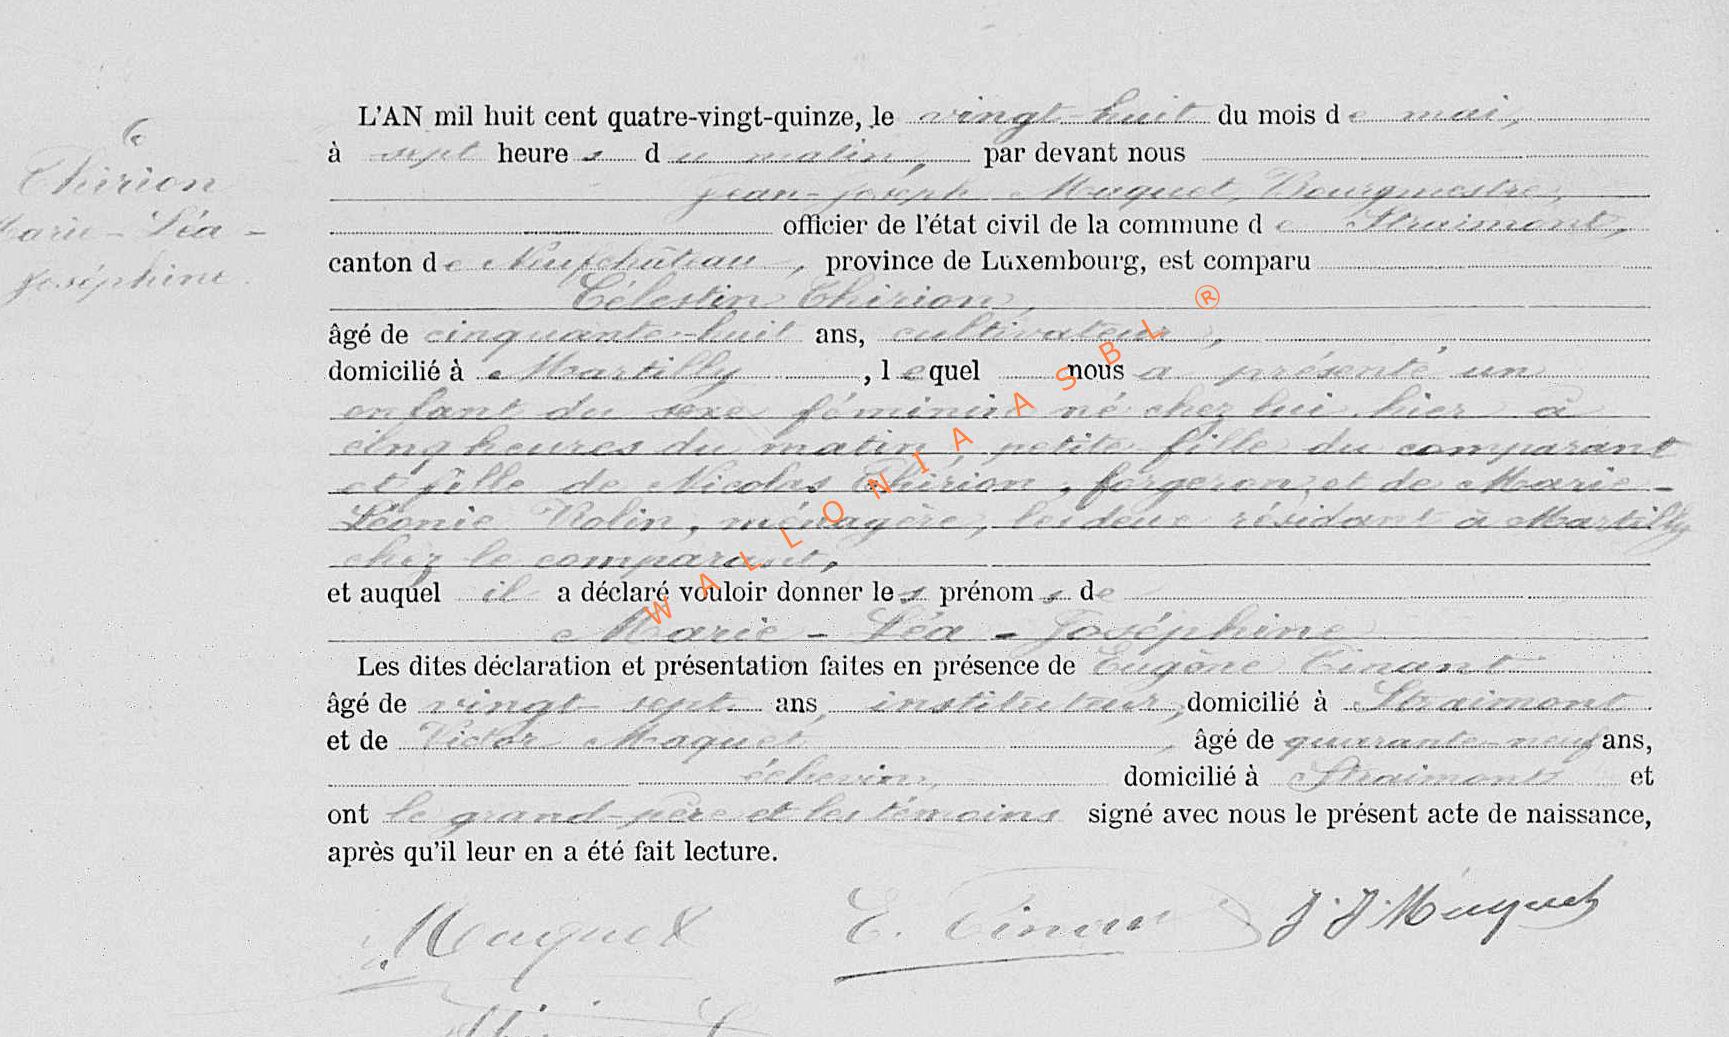 6
Thirion
Marie - Léa -
Joséphine.
L'AN mil huit cent quatre-vingt-quinze, le vingt-huit du mois de mai,
à sept heures du matin, par devant nous
Jean-Joseph Maquet, Bourgmestre,
officier de l'état civil de la commune de Straimont,
canton de Neufchâteau, province de Luxembourg, est comparu
Célestin Thirion,
âgé de cinquante-huit ans, cultivateur,
domicilié à Martilly, lequel nous a présenté un
enfant du sexe féminin né chez lui hier à
cinq heures du matin, petite fille du comparant
et fille de Nicolas Thirion, forgeron, et de Marie-
Léonie Rolin, ménagère, les deux résidant à Martilly
chez le comparant,
et auquel il a déclaré vouloir donner les prénoms de
Marie - Léa - Joséphine
Les dites déclaration et présentation faites en présence de Eugène Tinant
âgé de vingt-sept ans, instituteur, domicilié à Straimont
et de Victor Maquet, âgé de quarante-neuf ans,
échevin, domicilié à Straimont et
ont le grand-père et les témoins signé avec nous le présent acte de naissance,
après qu'il leur en a été fait lecture.
Maquet E. Tinant J. J. Maquet
WALLONIA ASBL ®